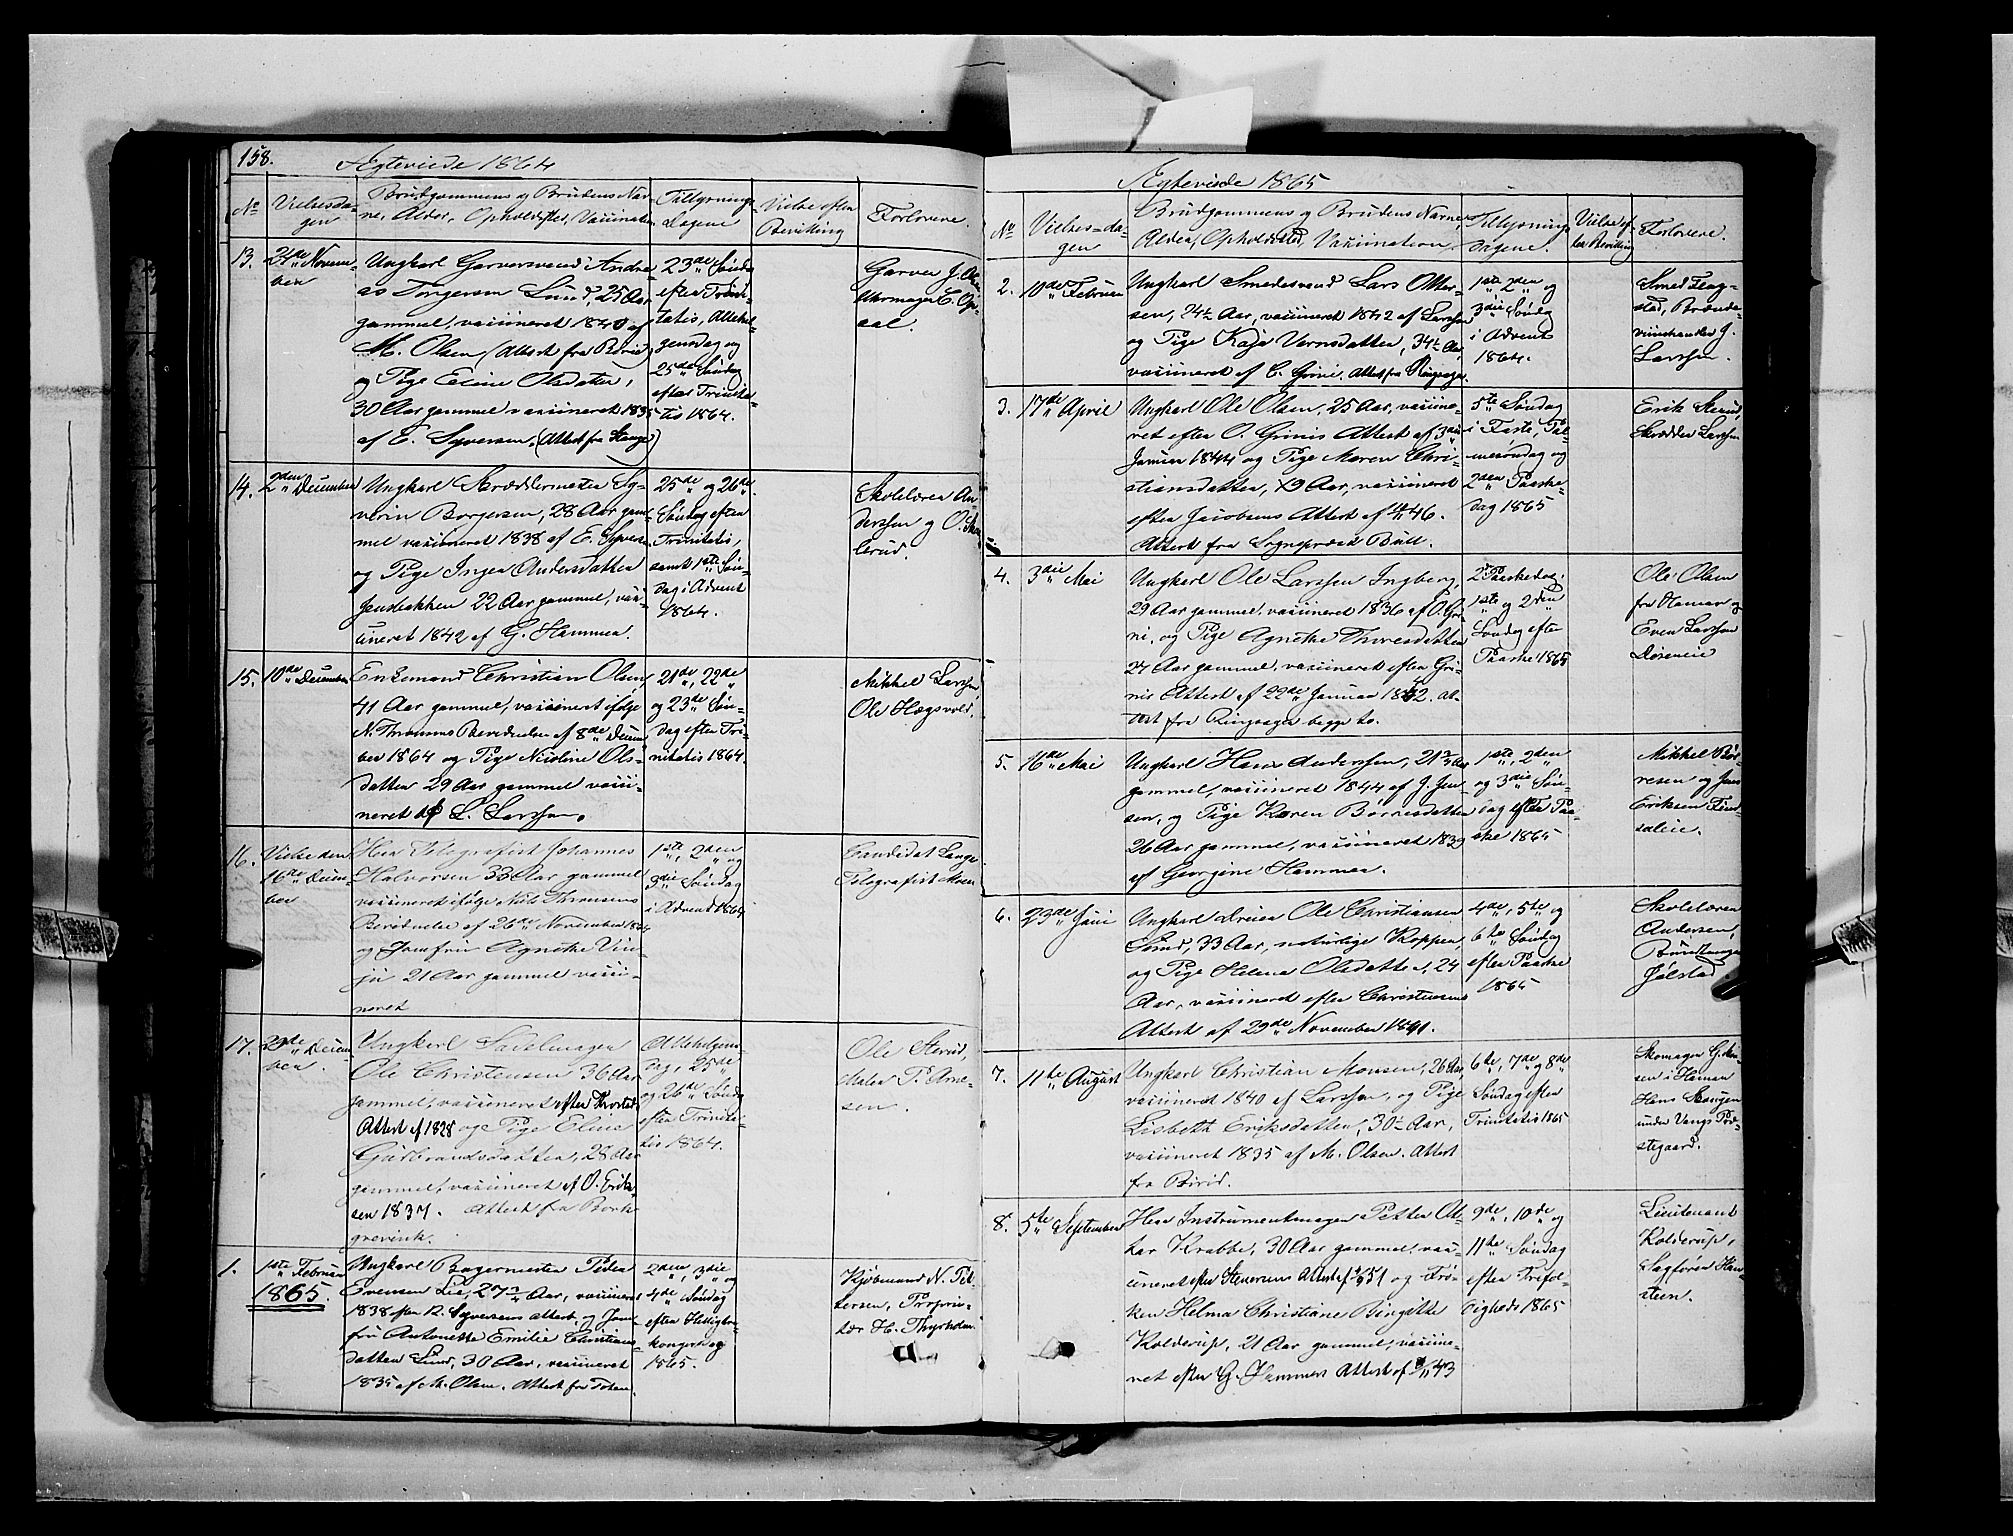 158.
Ægteviede 1864
No
Vielsesda-
gen
Brudgommens og Brudens Nav-
ne, Alder, Opholdssted, Vaxination
Tillysnings
Dagene
Vielse efter
Bevilling
Forlovere.
13.
24de Novem-
ber
Ungkarl Garversvend Andre-
as Torgersen Lund, 25 Aar
gammel, vaxineret 1840 af
M. Olsen (Attest fra Birid)
og Pige Eline Olsdatter,
30 Aar gammel vaxineret 1835
af E. Syversen. (Attest fra Stange)
23de Søndag
efter Trini-
tatis, Allehel-
gensdag og
25de Søndag
efter Trinita-
tis 1864.
Garver J.
Uhrmager C. Op-
sal.
14.
2den December
Ungkarl Skræddermester Sy-
verin Borgersen, 28 Aar gam-
mel vaxineret 1838 af E. Syvers.
og Pige Inger Andersdatter
Jensbakken 22 Aar gammel, vaxi-
neret 1842 af G. Hammer.
25de og 26de
Søndag efter
Trinitatis,
samt 1ste Søn-
dag i Advent
1864.
Skolelærer An-
derssen og O.
lerud.
15.
10de December
Enkemand Christian Olsen,
41 Aar gammel, vaxineret ifølge
N. Thronsens Bevidnelse af 8de Decem-
ber 1864 og Pige Nicoline Ols-
datter 29 Aar gammel vaxi-
neret af L. Larssen.
21de, 22de
og 23de Søn-
dag efter Tri-
nitatis 1864.
Mikkel Larssen,
Ole Hægsvold.
16.
Vielse den
16de Decem-
ber
Herr Telegrafist Johannes
Halvorsen 33 Aar gammel
vaxineret ifølge Nils Thronsens
Bevidnelse af 26de November 1864
og Jomfru Agnethe
21 Aar gammel vaxi-
neret
1ste, 2den og
3die Søndag
i Advent 1864
Candidat Lange
Telegrafist Moen
17.
29de Decem-
ber.
Ungkarl Sadelmager
Ole Christensen 36 Aar
gammel, vaxineret efter
Attest af 1828 og Pige Eline
Gulbrandsdatter, 28 Aar
gammel, vaxineret af O. Erik-
sen 1837. Attest fra Bork-
grevink.
Allehelgens-
dag, 25de
og 26de Søndag
efter Trinita-
tis 1864.
Ole Sterud,
Maler P. Arne-
sen.
1.
1ste Februar
1865.
Ungkarl Bagermester Peder
Evensen Lie, 27 3/4 Aar, vaxineret
1838 efter R. Syversens Attest og Jom-
fru Antonette Emilie Christians-
datter Lund, 30 Aar, vaxineret
1835 af M. Olsen. Attest fra Toten.
2den, 3die og
4de Søndag
efter Helligtre-
kongersdag
1865.
Kjøbmand N. Pet-
tersen, Proprie-
tær H. Thyrholm
Ægteviede 1865
No
Vielses-da-
gen
Brudgommens og Brudens Navne,
Alder, Opholdssted, Vaxination
Tillysnings
dagene.
Vielse ef-
ter Bevilling
Forlovere.
2.
10de Februar
Ungkarl Smedesvend Lars Otter-
sen, 24 1/2 Aar, vaxineret 1842 af Larssen
og Pige Kaja Vernsdatter, 34 1/2 Aar,
vaxineret af C. Grini. Attest fra Ringsager.
1ste 2den og
3die Søndag
i Advent
1864.
Smed Flag-
stad, Brænde-
viinshandler J.
Larssen.
3.
17de April
Ungkarl Ole Olsen, 25 Aar, vaxine-
ret efter O. Grinis Attest af 3die
Januar 1844 og Pige Maren Chri-
stiansdatter, 19 Aar, vaxineret
efter Jacobsens Attest af 46.
Attest fra Sognepræst Bull.
5te Søndag
i Faste, Pal-
mesøndag og
2den Paaske-
dag 1865
Erik Sterud
Skrædder Larssen
4.
3die Mai
Ungkarl Ole Larssen Ingberg,
29 Aar gammel, vaxineret 1836 af O. Gri-
ni, og Pige Agnethe Thoresdatter
24 Aar gammel, vaxineret efter Gri-
nis Attest af 22de Januar 1842. At-
test fra Ringsager begge to.
2 Paaskedag,
1ste og 2den
Søndag efter
Paaske 1865
Ole Olsen
fra Hamar og
Even Larssen
5.
16de Mai
Ungkarl Hans Anderssen, 21 3/4 Aar
gammel, vaxineret 1844 af J. Jen-
sen, og Pige Karen Børresdatter
26 Aar gammel, vaxineret 1839
af Georgine Hammer.
1ste, 2den
og 3die Søn-
dag efter Paa-
ske 1865
Mikkel Bør-
resen og Jens
Eriksen Find-
saleie.
6.
23de Juni
Ungkarl Dreier Ole Christiansen
Lund, 33 Aar, naturlige Kopper,
og Pige Helene Olsdatter, 24
Aar, vaxineret efter Christensens
Attest af 29de November 1841.
4de, 5te og
6te Søndag
efter Paaske
1865
Skolelærer
Andersen,
Buntmager
Jølstad
7.
11te August
Ungkarl Christian Monsen, 26 Aar,
vaxineret 1840 af Larssen, og Pige
Lisbeth Eriksdatter, 30 1/2 Aar,
vaxineret 1835 af M. Olsen. Attest
fra Birid.
6te, 7de og 8de
Søndag efter
Trinitatis 1865
Skomager G.
sen i Hamar
Hans
under Vangs Præ-
stegaard.
8.
5te September
Herr Instrumentmager Petter Ot-
tar Krabbe, 30 Aar gammel, vaxi-
neret efter Stenersens Attest af 51 og Frø-
ken Helma Christiane Birgitte
Kolderup, 21 Aar gammel, vaxine-
ret efter G. Hammers Attest af 43
9de, 10de og
11te Søndag
efter Trefol-
dighed 1865
Lieutenant
Kolderup,
Sagfører Han-
steen.